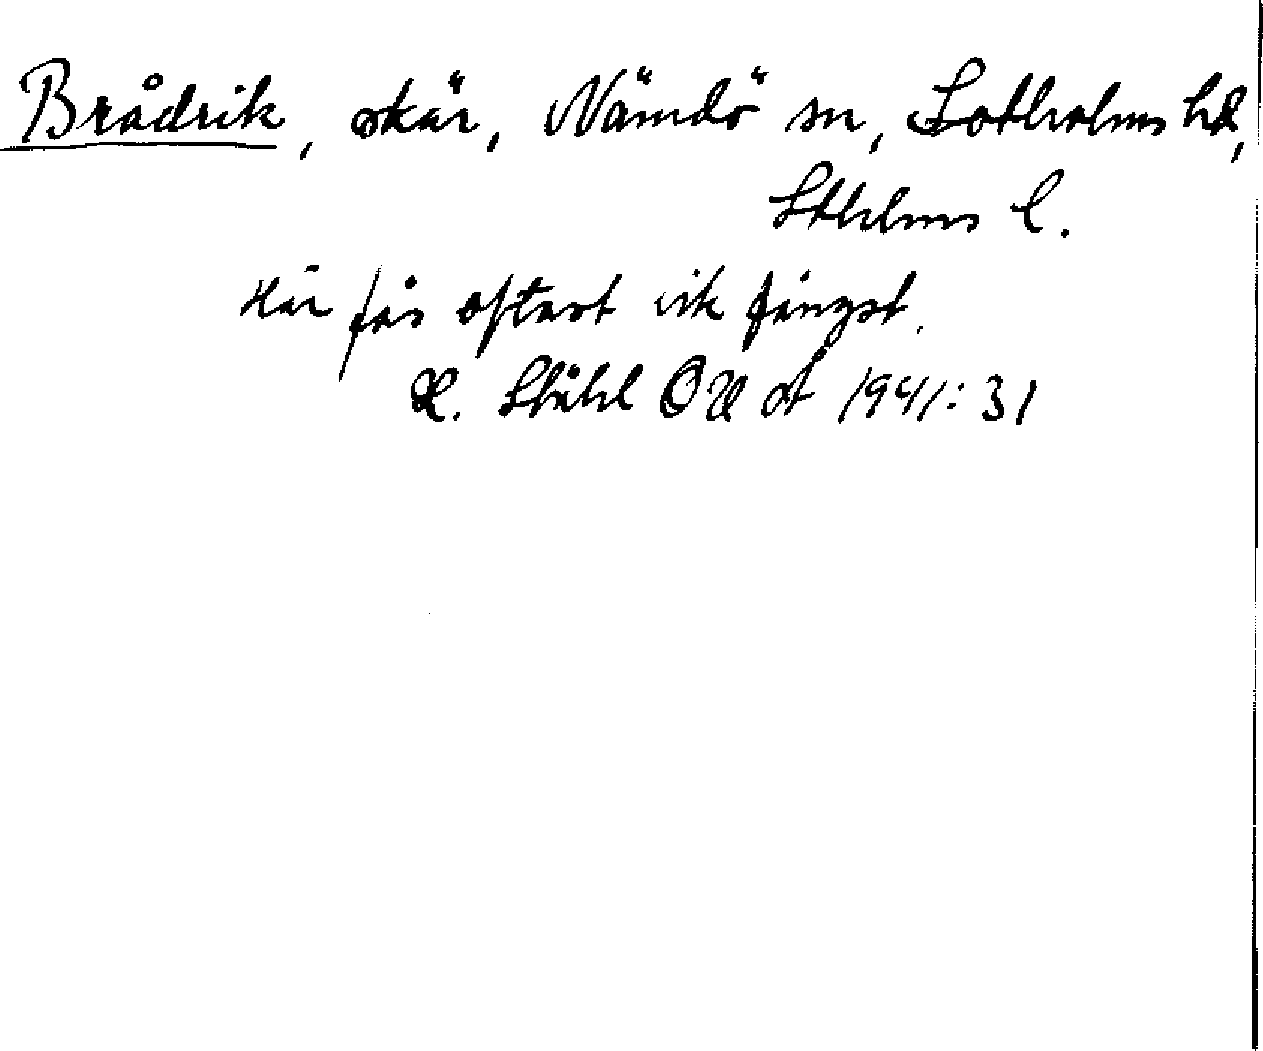 Brådrik, skär, Nämdö sn, Sotholms hd,
Sthlms l.
Här fås oftast rik fångst.
H. Ståhl OUÅ 1941: 31